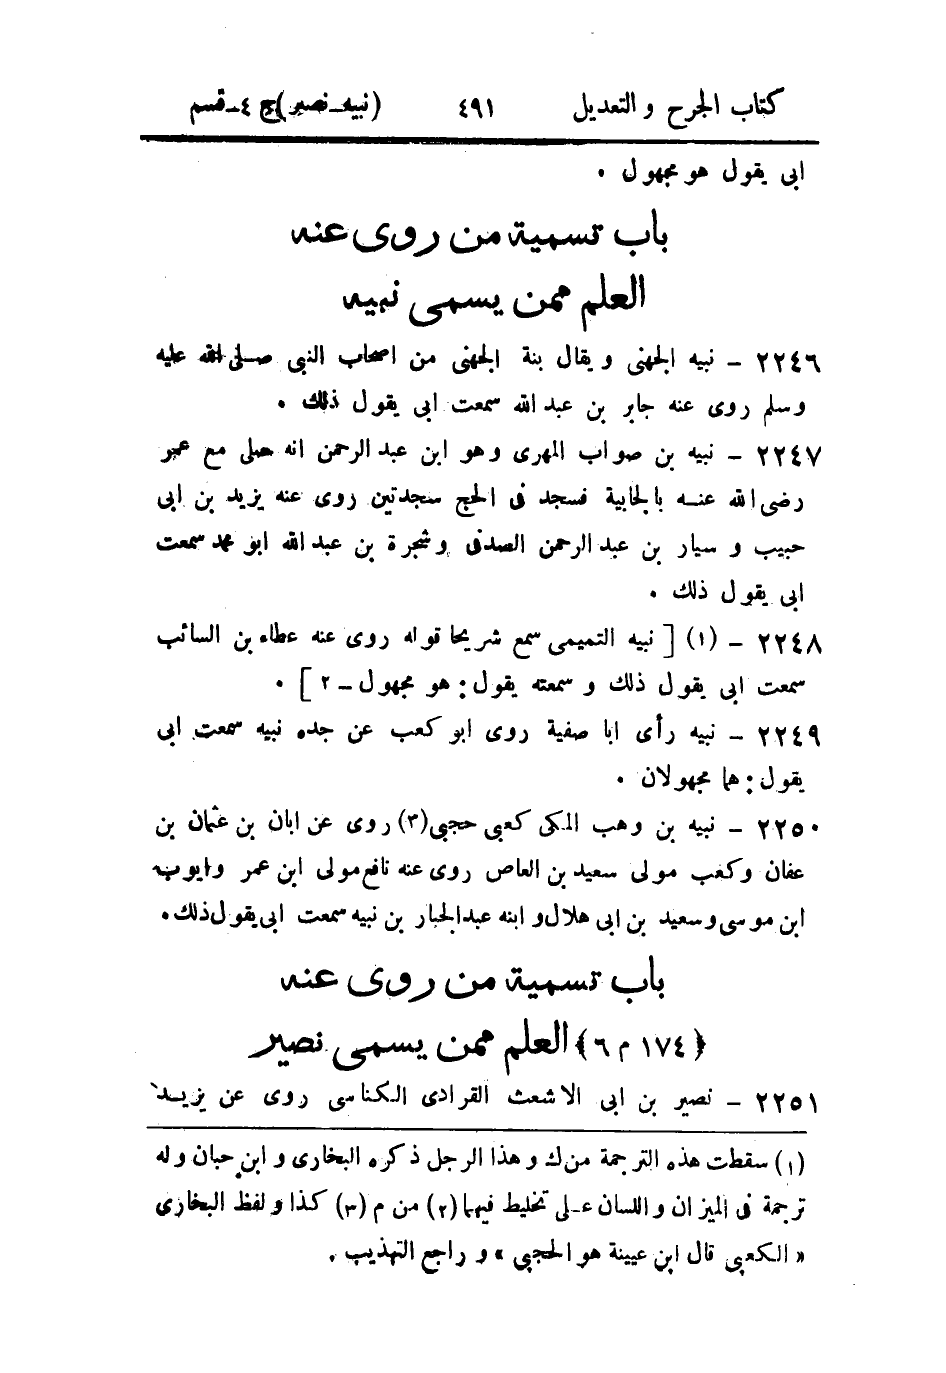 كتاب الجرح و التعديل ٤٩١ (نبيه-نصير) ج ٤-قسم
ابى يقول هو مجهول ٠
باب تسمية من روى عنه
العلم ممن يسمى نبيه
٢٢٤٦ - نبيه الجهنى و يقال بنة الجهنى من اصحاب النبى صلى الله عليه
وسلم روى عنه جابر بن عبد الله سمعت ابى يقول ذلك ٠
٢٢٤٧ - نبيه بن صواب المهرى وهو ابن عبد الرحمن انه صلى مع عمر
رضى الله عنه بالجابية فسجد فى الحج سجدتين روى عنه يزيد بن ابى
حبيب و سيار بن عبد الرحمن الصدفى و شجرة بن عبد الله ابو محمد سمعت
ابى يقول ذلك ٠
٢٢٤٨ - (١) [ نبيه التميمى سمع شريحا قوله روى عنه عطاء بن السائب
سمعت ابى يقول ذلك و سمعته يقول: هو مجهول - ٢ ] ٠
٢٢٤٩ - نبيه رأى ابا صفية روى ابو كعب عن جده نبيه سمعت ابى
يقول: هما مجهولان ٠
٢٢٥٠ - نبيه بن وهب المكى كعبى حجبى (٣) روى عن ابان بن عثمان بن
عفان وكعب مولى سعيد بن العاص روى عنه نافع مولى ابن عمر وايوب
ابن موسى وسعيد بن ابى هلال و ابنه عبد الجبار بن نبيه سمعت ابى يقول ذلك ٠
باب تسمية من روى عنه
﴿ ١٧٤ م ٦ ﴾ العلم ممن يسمى نصير
٢٢٥١ - نصير بن ابى الاشعث القرادى الكناسى روى عن يزيد
(١) سقطت هذه الترجمة من ك و هذا الرجل ذكره البخارى و ابن حبان وله
ترجمة فى الميزان و اللسان على تخليط فيهما (٢) من م (٣) كذا و لفظ البخارى
« الكعبى قال ابن عيينة هو الحجبى » و راجع التهذيب ٠